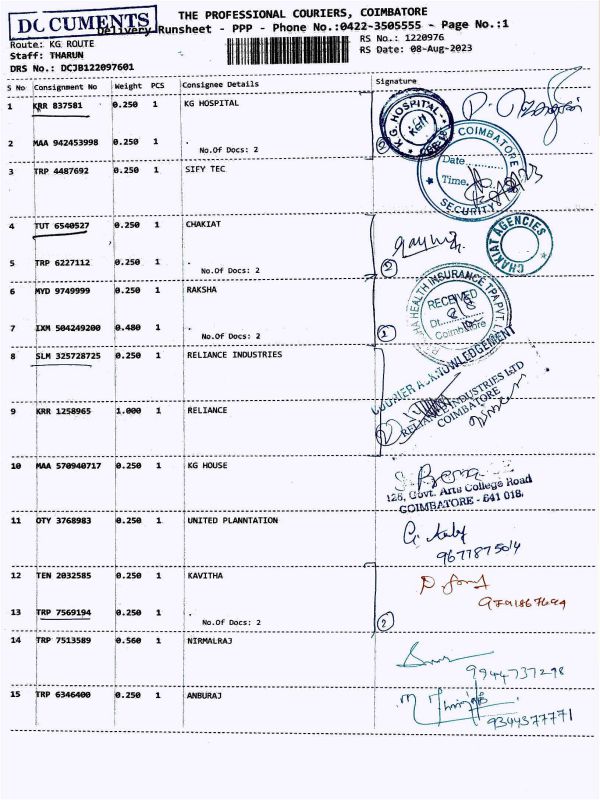 DOCUMENTS
THE PROFESSIONAL COURIERS, COIMBATORE
Delivery Runsheet - PPP - Phone No.:0422-3505555 - Page No.:1
Route: KG ROUTE
Staff: THARUN
DRS No.: DCJB122097601
RS No.: 1220976
RS Date: 08-Aug-2023
S No Consignment No Weight PCS Consignee Details Signature
1 KRR 837581 0.250 1 KG HOSPITAL
K.G. HOSPITAL
KGH
2 MAA 942453998 0.250 1 .
No.Of Docs: 2
COIMBATORE
Date
Time
SECURITY
3 TRP 4487692 0.250 1 SIFY TEC
4 TUT 6540527 0.250 1 CHAKIAT
CHAKIAT AGENCIES
5 TRP 6227112 0.250 1 .
No.Of Docs: 2
2
6 MYD 9749999 0.250 1 RAKSHA
HEALTH INSURANCE TPA PVT. L
RECEIVED
Dt.
Coimbatore
7 IXM 504249200 0.480 1 .
No.Of Docs: 2
1
8 SLM 325728725 0.250 1 RELIANCE INDUSTRIES
ACKNOWLEDGEMENT
RELIANCE INDUSTRIES LTD
COIMBATORE
9 KRR 1258965 1.000 1 RELIANCE
10 MAA 570940717 0.250 1 KG HOUSE
126, Govt. Arts College Road
COIMBATORE - 641 018.
11 OTY 3768983 0.250 1 UNITED PLANNTATION
9677875014
12 TEN 2032585 0.250 1 KAVITHA
13 TRP 7569194 0.250 1 .
No.Of Docs: 2
2
14 TRP 7513589 0.560 1 NIRMALRAJ
9944737298
15 TRP 6346400 0.250 1 ANBURAJ
9344377771